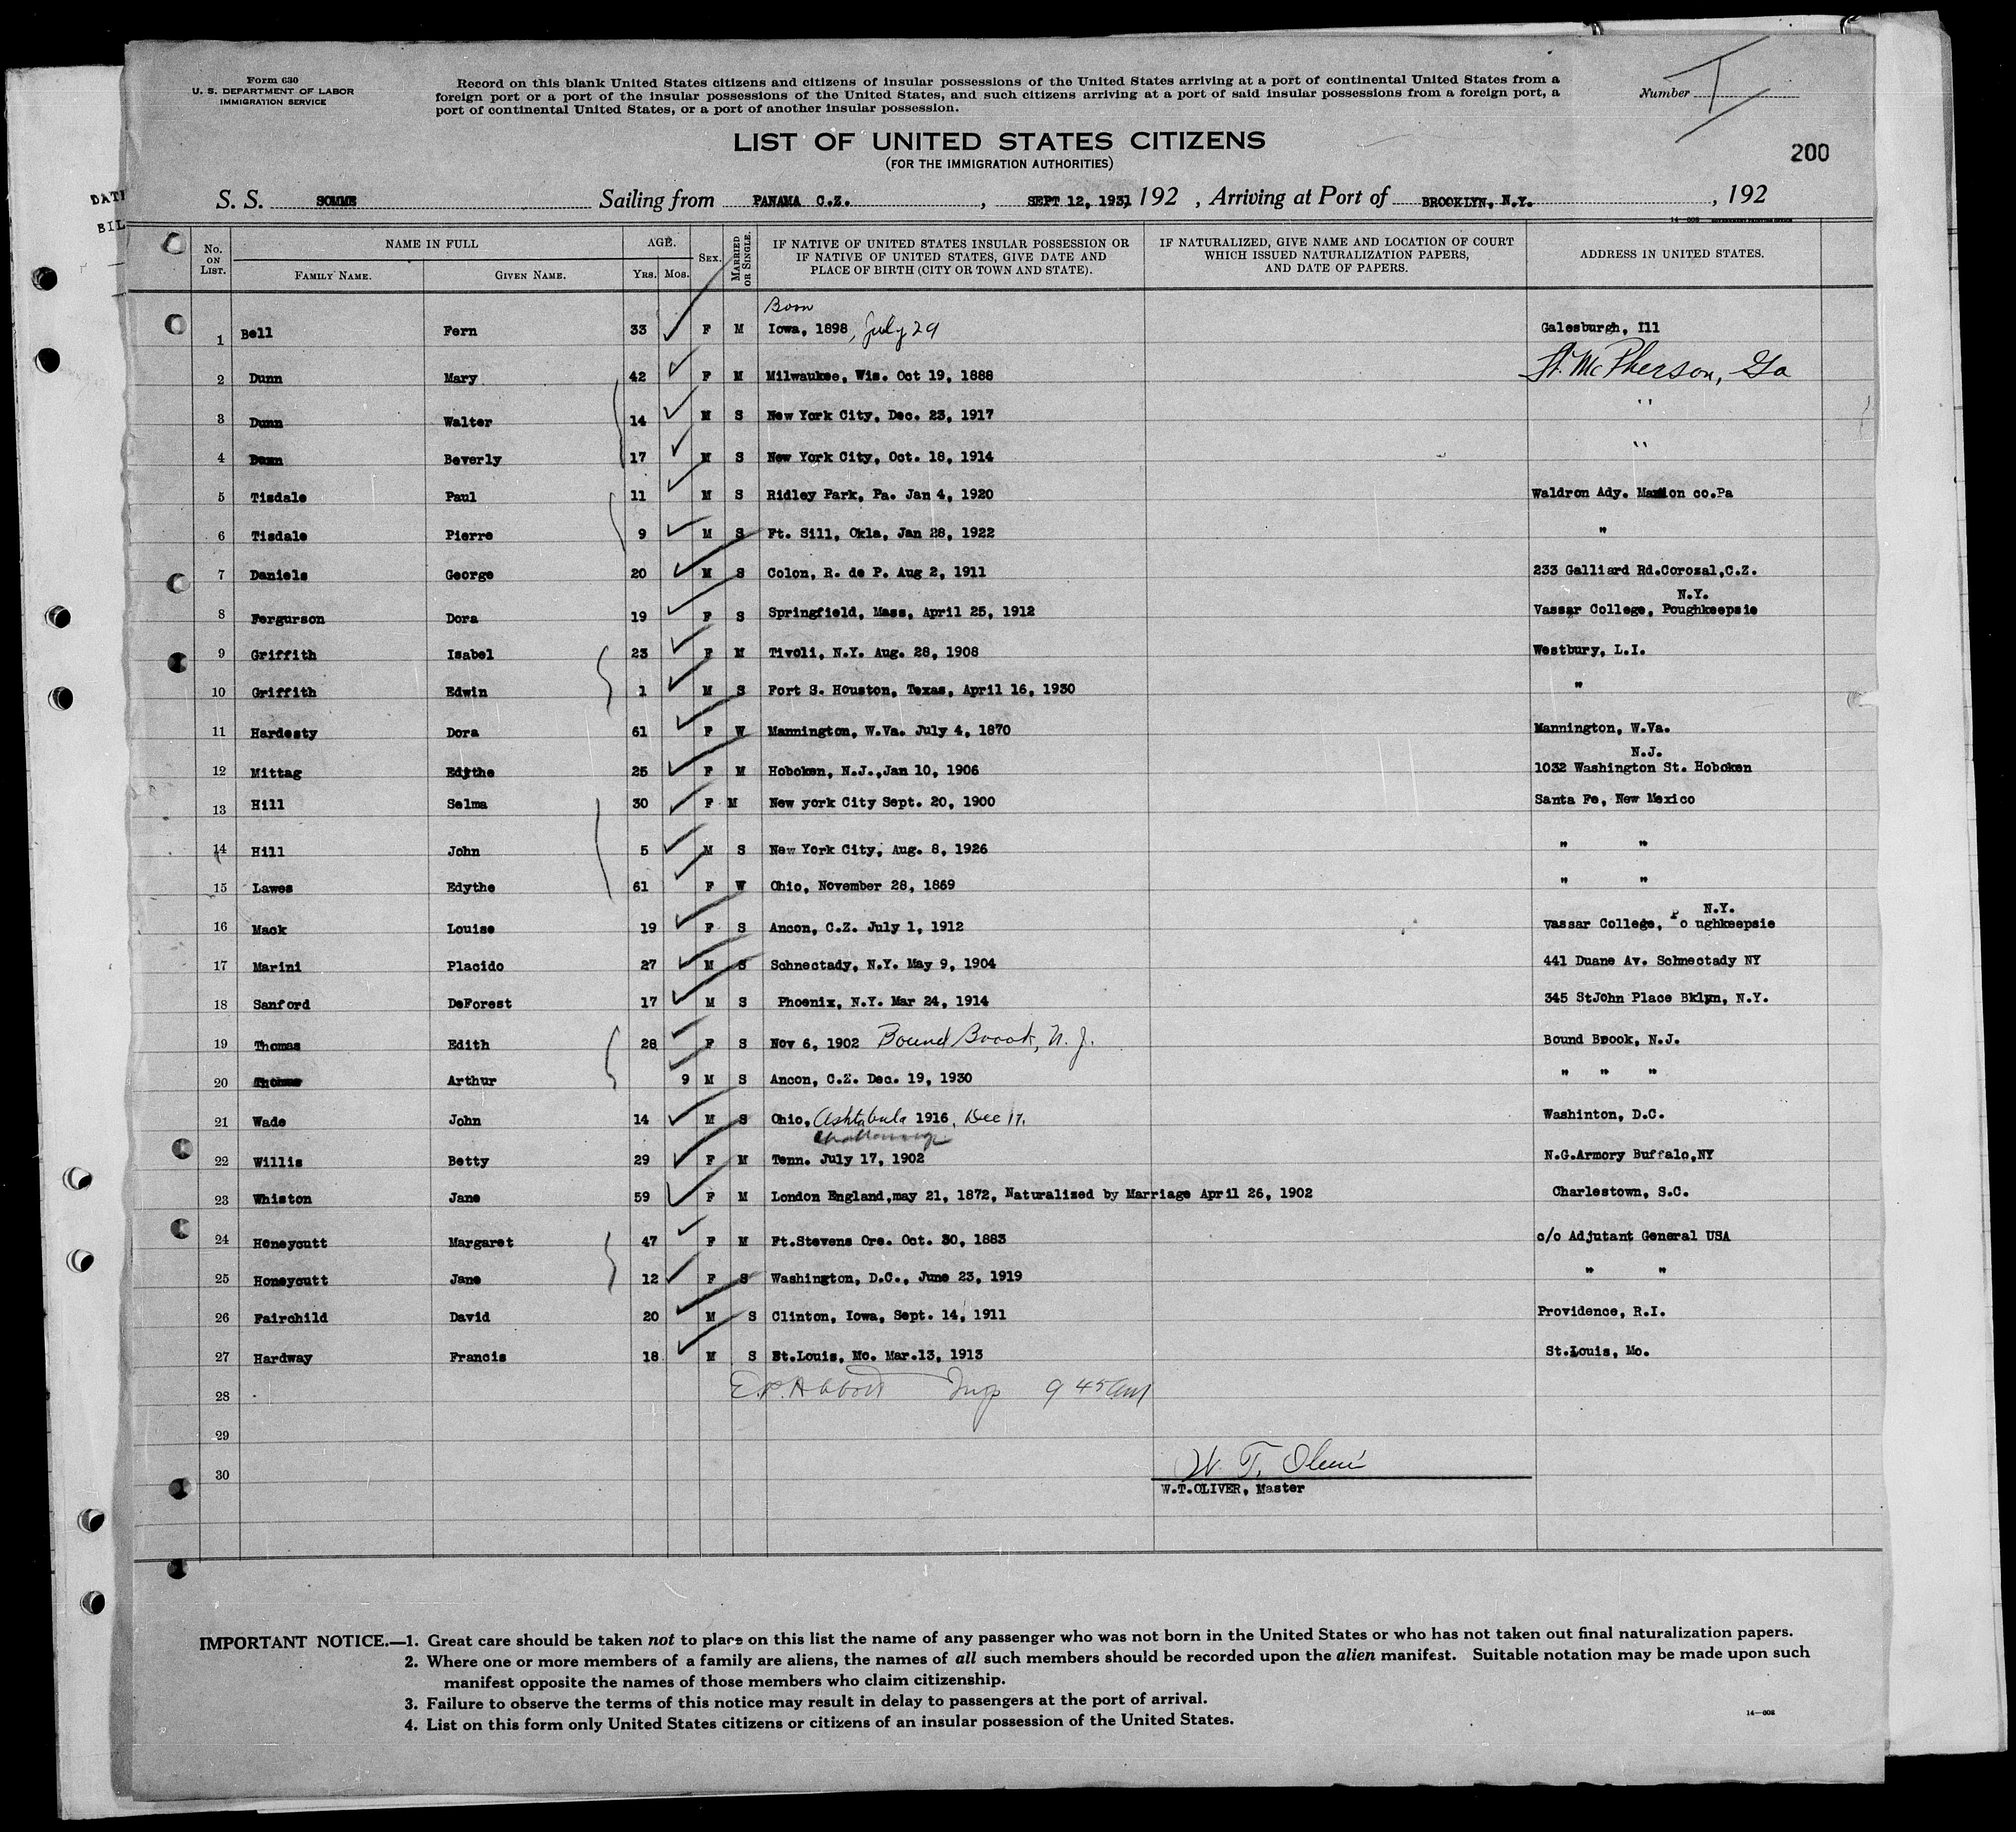 Form 630
U. S. DEPARTMENT OF LABOR
IMMIGRATION SERVICE
Record on this blank United States citizens and citizens of insular possessions of the United States arriving at a port of continental United States from a
foreign port or a port of the insular possessions of the United States, and such citizens arriving at a port of said insular possessions from a foreign port, a
port of continental United States, or a port of another insular possession.
Number I
LIST OF UNITED STATES CITIZENS
(FOR THE IMMIGRATION AUTHORITIES)
200
S. S. SOMME Sailing from PANAMA C.Z. , SEPT 12, 1931, 192 , Arriving at Port of BROOKLYN, N.Y. , 192
No. ON LIST. NAME IN FULL FAMILY NAME. GIVEN NAME. AGE. YRS. MOS. SEX. MARRIED OR SINGLE. IF NATIVE OF UNITED STATES INSULAR POSSESSION OR IF NATIVE OF UNITED STATES, GIVE DATE AND PLACE OF BIRTH (CITY OR TOWN AND STATE). IF NATURALIZED, GIVE NAME AND LOCATION OF COURT WHICH ISSUED NATURALIZATION PAPERS, AND DATE OF PAPERS. ADDRESS IN UNITED STATES.
Boon
1 Bell Fern 33 F M Iowa, 1898, July 29 Galesburgh, Ill
2 Dunn Mary 42 F M Milwaukee, Wis. Oct 19, 1888 Ft. McPherson, Ga
3 Dunn Walter 14 M S New York City, Dec. 23, 1917 "
4 Dunn Beverly 17 M S New York City, Oct. 18, 1914 "
5 Tisdale Paul 11 M S Ridley Park, Pa. Jan 4, 1920 Waldron Ady. Marion co.Pa
6 Tisdale Pierre 9 M S Ft. Sill, Okla, Jan 28, 1922 "
7 Daniels George 20 M S Colon, R. de P. Aug 2, 1911 233 Galliard Rd.Corozal,C.Z.
8 Fergurson Dora 19 F S Springfield, Mass, April 25, 1912 Vassar College, Poughkeepsie N.Y.
9 Griffith Isabel 23 F M Tivoli, N.Y. Aug. 28, 1908 Westbury, L.I.
10 Griffith Edwin 1 M S Fort S. Houston, Texas, April 16, 1930 "
11 Hardesty Dora 61 F W Mannington, W.Va. July 4, 1870 Mannington, W.Va.
12 Mittag Edythe 25 F M Hoboken, N.J.,Jan 10, 1906 1032 Washington St. Hoboken N.J.
13 Hill Selma 30 F M New york City Sept. 20, 1900 Santa Fe, New Mexico
14 Hill John 5 M S New York City, Aug. 8, 1926 " "
15 Lawes Edythe 61 F W Ohio, November 28, 1869 " "
16 Mack Louise 19 F S Ancon, C.Z. July 1, 1912 Vassar College, Poughkeepsie N.Y.
17 Marini Placido 27 M S Schnectady, N.Y. May 9, 1904 441 Duane Av. Schnectady NY
18 Sanford DeForest 17 M S Phoenix, N.Y. Mar 24, 1914 345 StJohn Place Bklyn, N.Y.
19 Thomas Edith 28 F S Nov 6, 1902 Bound Brook, N.J. Bound Brook, N.J.
20 Thomas Arthur 9 M S Ancon, C.Z. Dec. 19, 1930 " " "
21 Wade John 14 M S Ohio, Ashtabula 1916, Dec 17. Washinton, D.C.
22 Willis Betty 29 F M Tenn. July 17, 1902 N.G.Armory Buffalo,NY
23 Whiston Jane 59 F M London England,may 21, 1872, Naturalized by Marriage April 26, 1902 Charlestown, S.C.
24 Honeycutt Margaret 47 F M Ft.Stevens Ore. Oct. 30, 1883 c/o Adjutant General USA
25 Honeycutt Jane 12 F S Washington, D.C., June 23, 1919 " "
26 Fairchild David 20 M S Clinton, Iowa, Sept. 14, 1911 Providence, R.I.
27 Hardway Francis 18 M S St.Louis, Mo. Mar.13, 1913 St.Louis, Mo.
28 E.P. Abbott Insp 9 45 AM
29
30
W. T. Oliver
W.T.OLIVER, Master
IMPORTANT NOTICE.—1. Great care should be taken not to place on this list the name of any passenger who was not born in the United States or who has not taken out final naturalization papers.
2. Where one or more members of a family are aliens, the names of all such members should be recorded upon the alien manifest. Suitable notation may be made upon such
manifest opposite the names of those members who claim citizenship.
3. Failure to observe the terms of this notice may result in delay to passengers at the port of arrival.
4. List on this form only United States citizens or citizens of an insular possession of the United States.
14—608